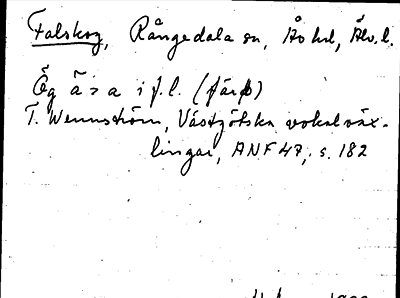 Falskog, Rångedala sn, Ås hd, Älv.l.
Ög ä > a i f.l. (färs)
T. Wennström, Västgötska vokalväx-
lingar, ANF 47, s. 182